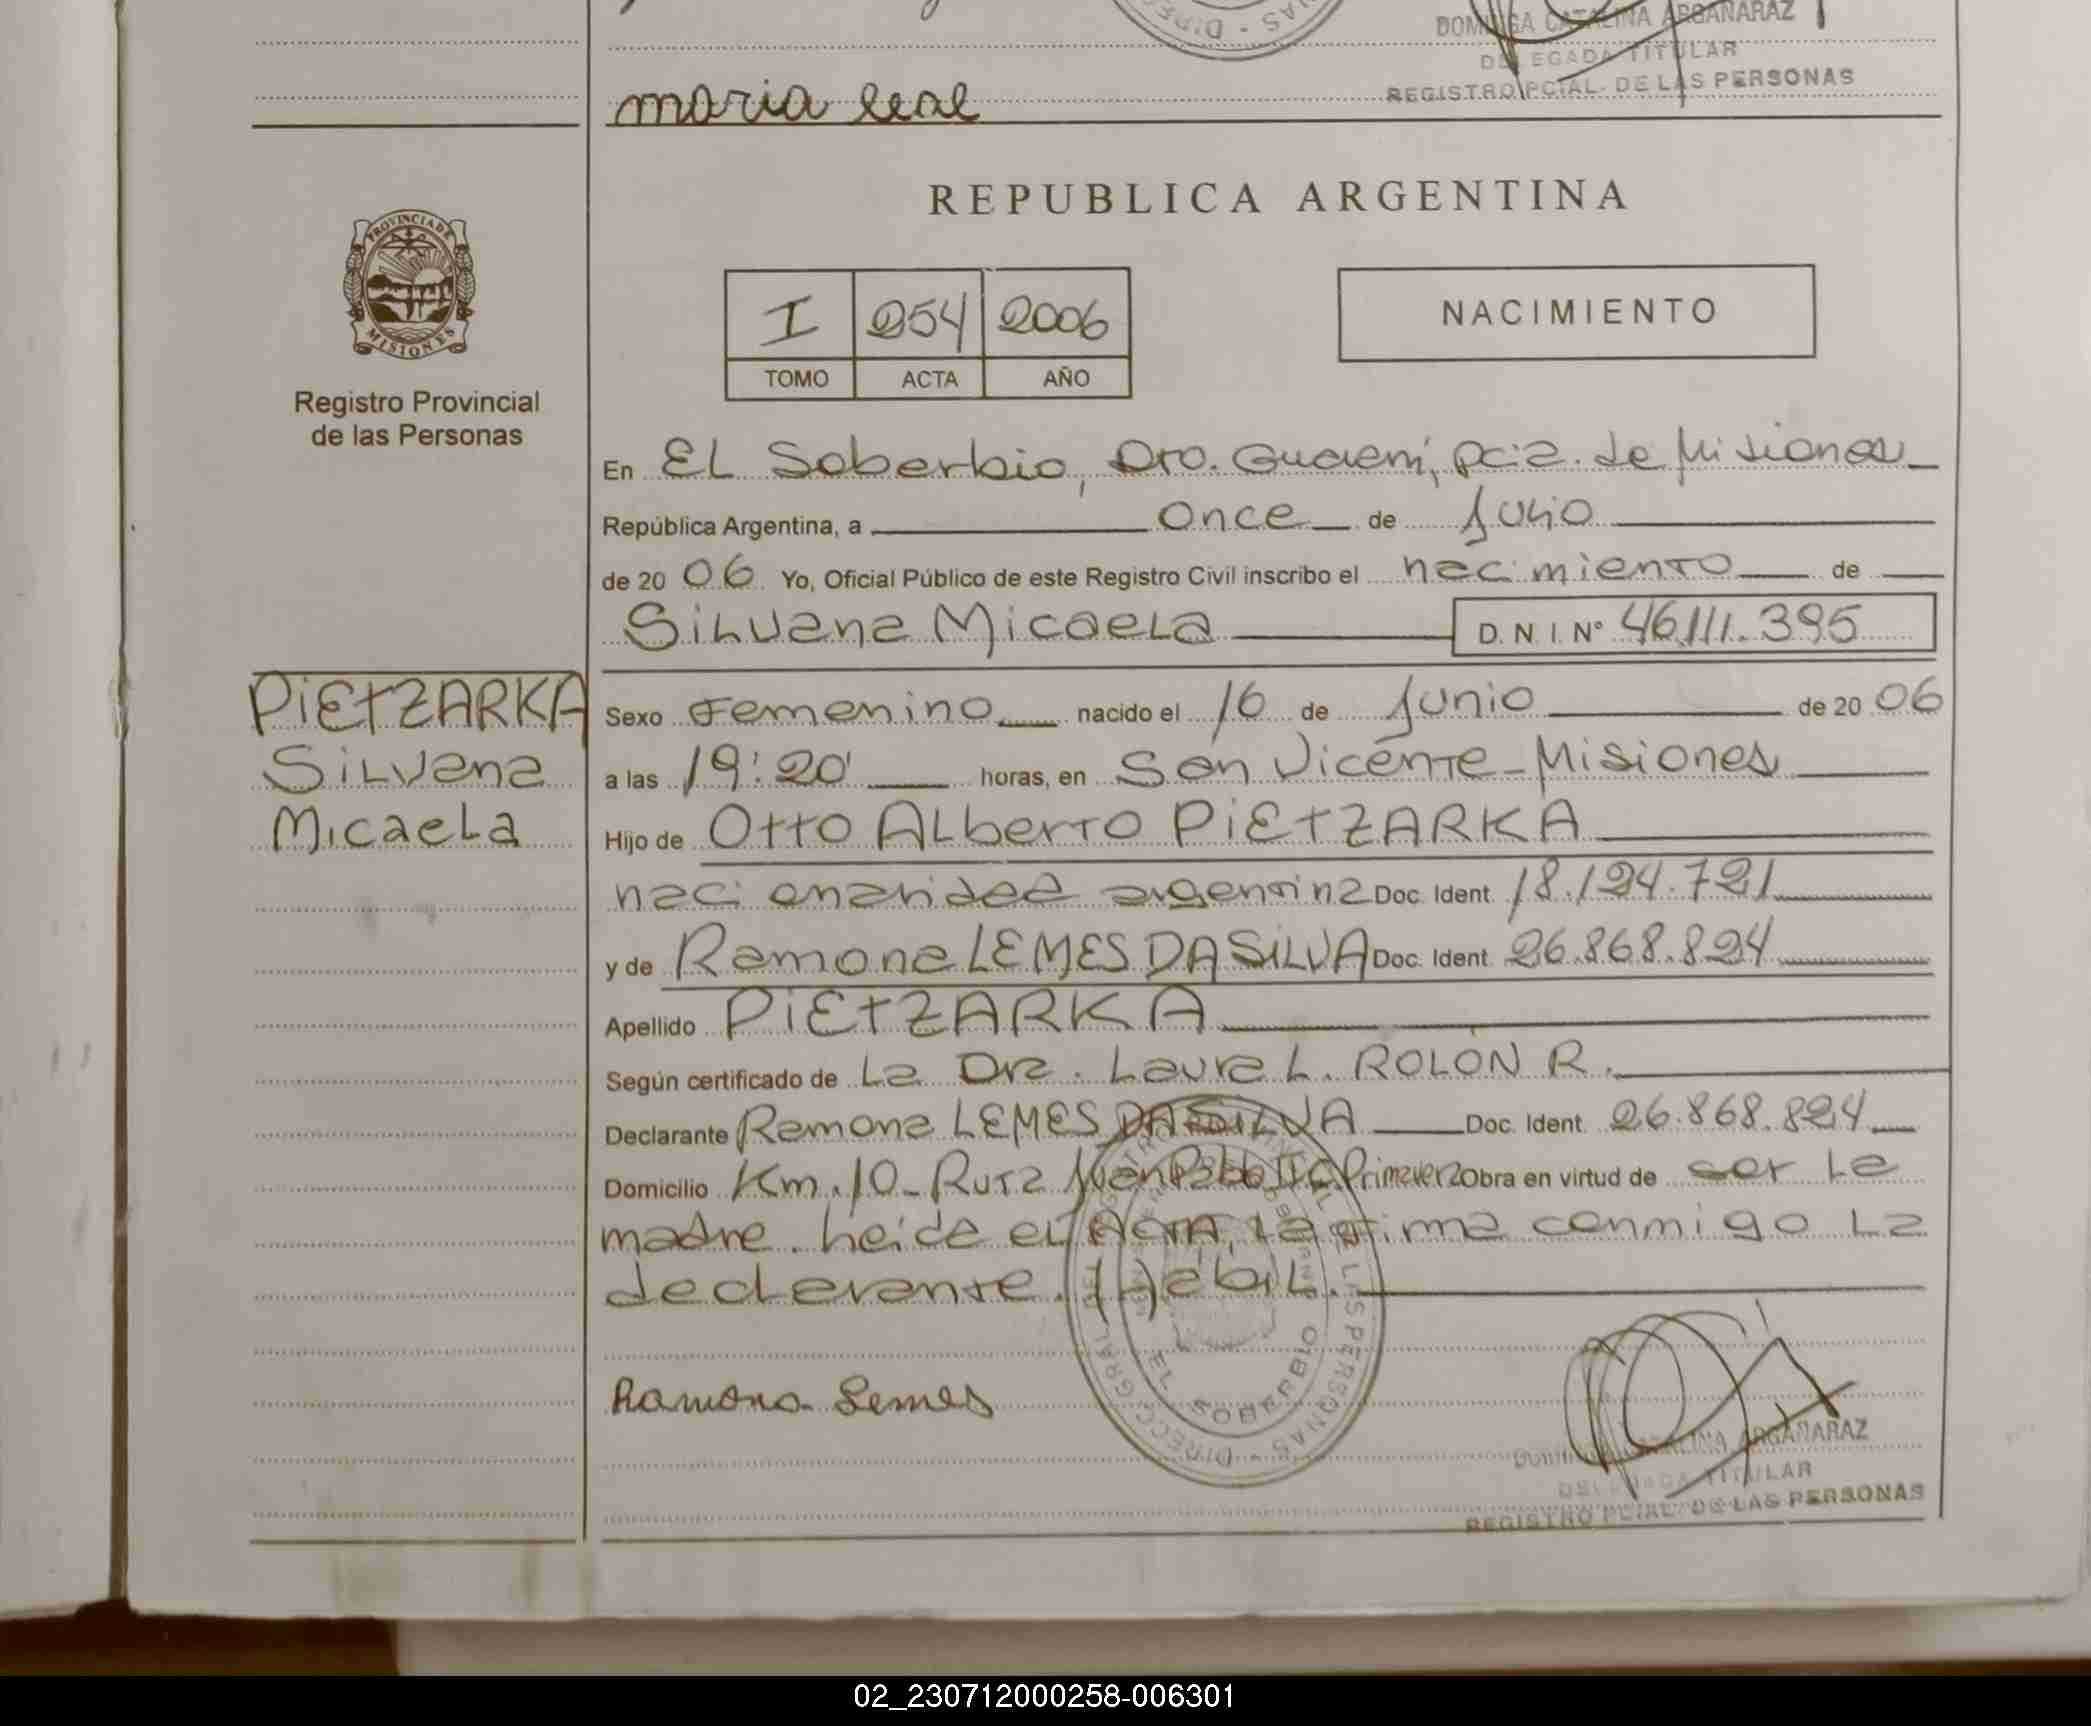 DIREC · SAS
DOMINGA CATALINA ARGAÑARAZ
DELEGADA TITULAR
REGISTRO PCIAL. DE LAS PERSONAS
maria leal
REPUBLICA ARGENTINA
PROVINCIA DE
MISIONES
I 254 2006
TOMO ACTA AÑO
NACIMIENTO
Registro Provincial
de las Personas
En EL Soberbio, Dto. Guaraní, pcia. de Misiones
República Argentina, a once de Julio
de 20 06 Yo, Oficial Público de este Registro Civil inscribo el nacimiento de
SiLvana Micaela D.N.I. Nº 46.111.395
PiEtZARKA
SiLvana
Micaela
Sexo Femenino nacido el 16 de Junio de 20 06
a las 19:20 horas, en San Vicente - Misiones
Hijo de Otto ALberto PiEtZARKA
nacionalidad argentina Doc. Ident. 18.124.721
y de Ramona LEMES DA SiLVA Doc. Ident. 26.868.824
Apellido PiEtZARKA
Según certificado de La Dra. Laura L. ROLÓN R.
Declarante Ramona LEMES DA SiLVA Doc. Ident. 26.868.824
Domicilio Km. 10 - Ruta Juan Pablo II C. Primavera Obra en virtud de ser La
madre. Leída el Acta, La firma conmigo La
declarante. HábiL.
EL SOBERBIO
DIRECC. GRAL. DE LAS PERSONAS
Ramona Lemes
CATALINA ARGAÑARAZ
DELEGADA TITULAR
REGISTRO PCIAL. DE LAS PERSONAS
02_230712000258-006301